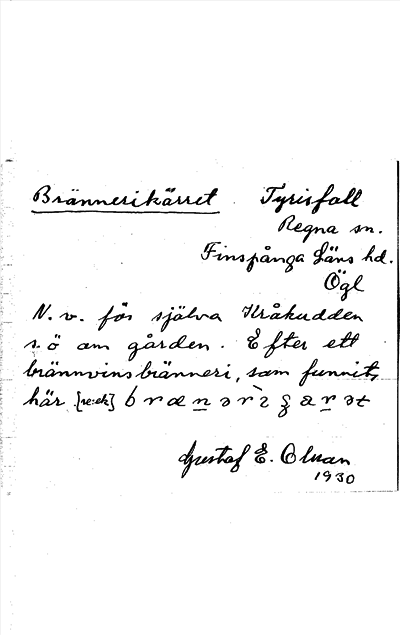 Brännerikärret Tyrisfall
Regna sn.
Finspånga Läns hd.
Ögl
N. v. för själva Kråkudden
s. ö om gården. Efter ett
brännvinsbränneri, som funnits
här.
Gustaf E. Olsson
1930